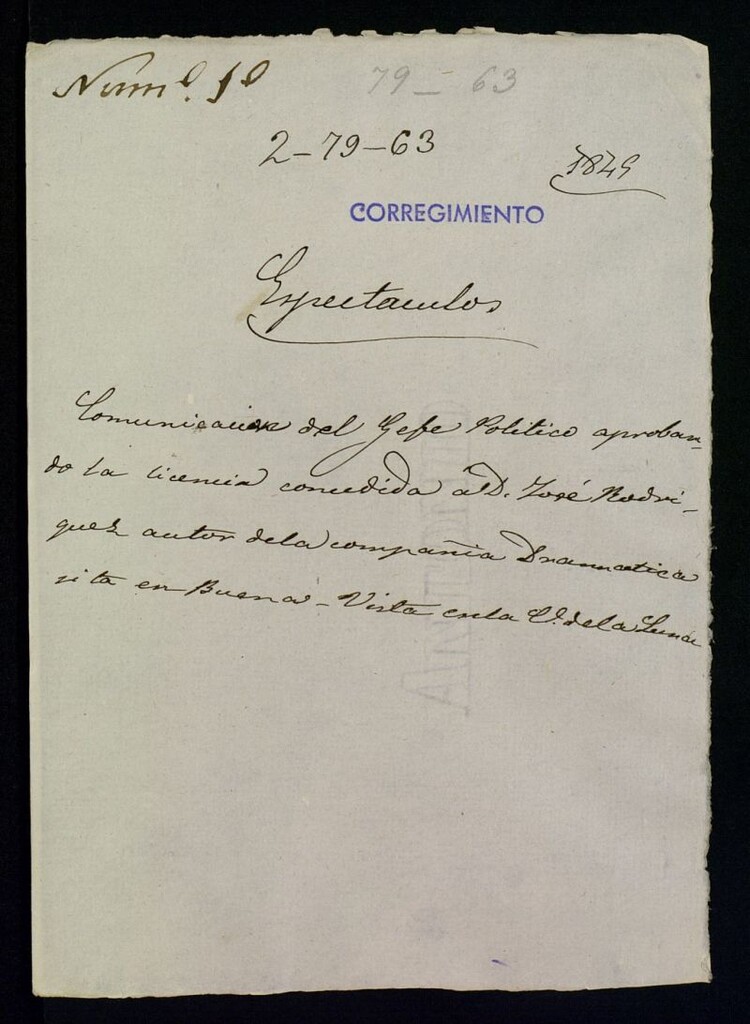 Numº. 1º
79-63
2-79-63
1849
CORREGIMIENTO
Espectaculos
Comunicacion del Gefe Politico aproban-
do la licencia concedida a D. José Rodri-
guez autor dela compañia Dramatica
sita en Buena-Vista enla C. dela Luna